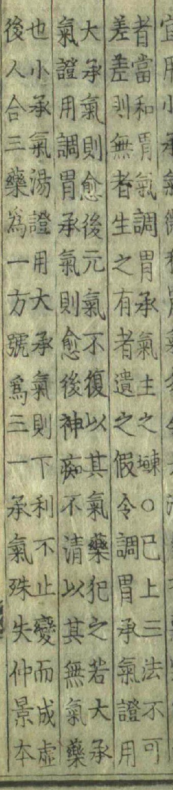 宜用小承氣
者當和胃氣調胃承氣主之○已上三法不可
差差則無者生之有者遺之假令調胃承氣證用
大承氣則愈後元氣不復以其氣藥犯之若大承
氣證用調胃承氣則愈後神痴不清以其無氣藥
也小承氣湯證用大承氣則下利不止變而成虛
後人合三藥為一方號爲三一承氣殊失仲景本